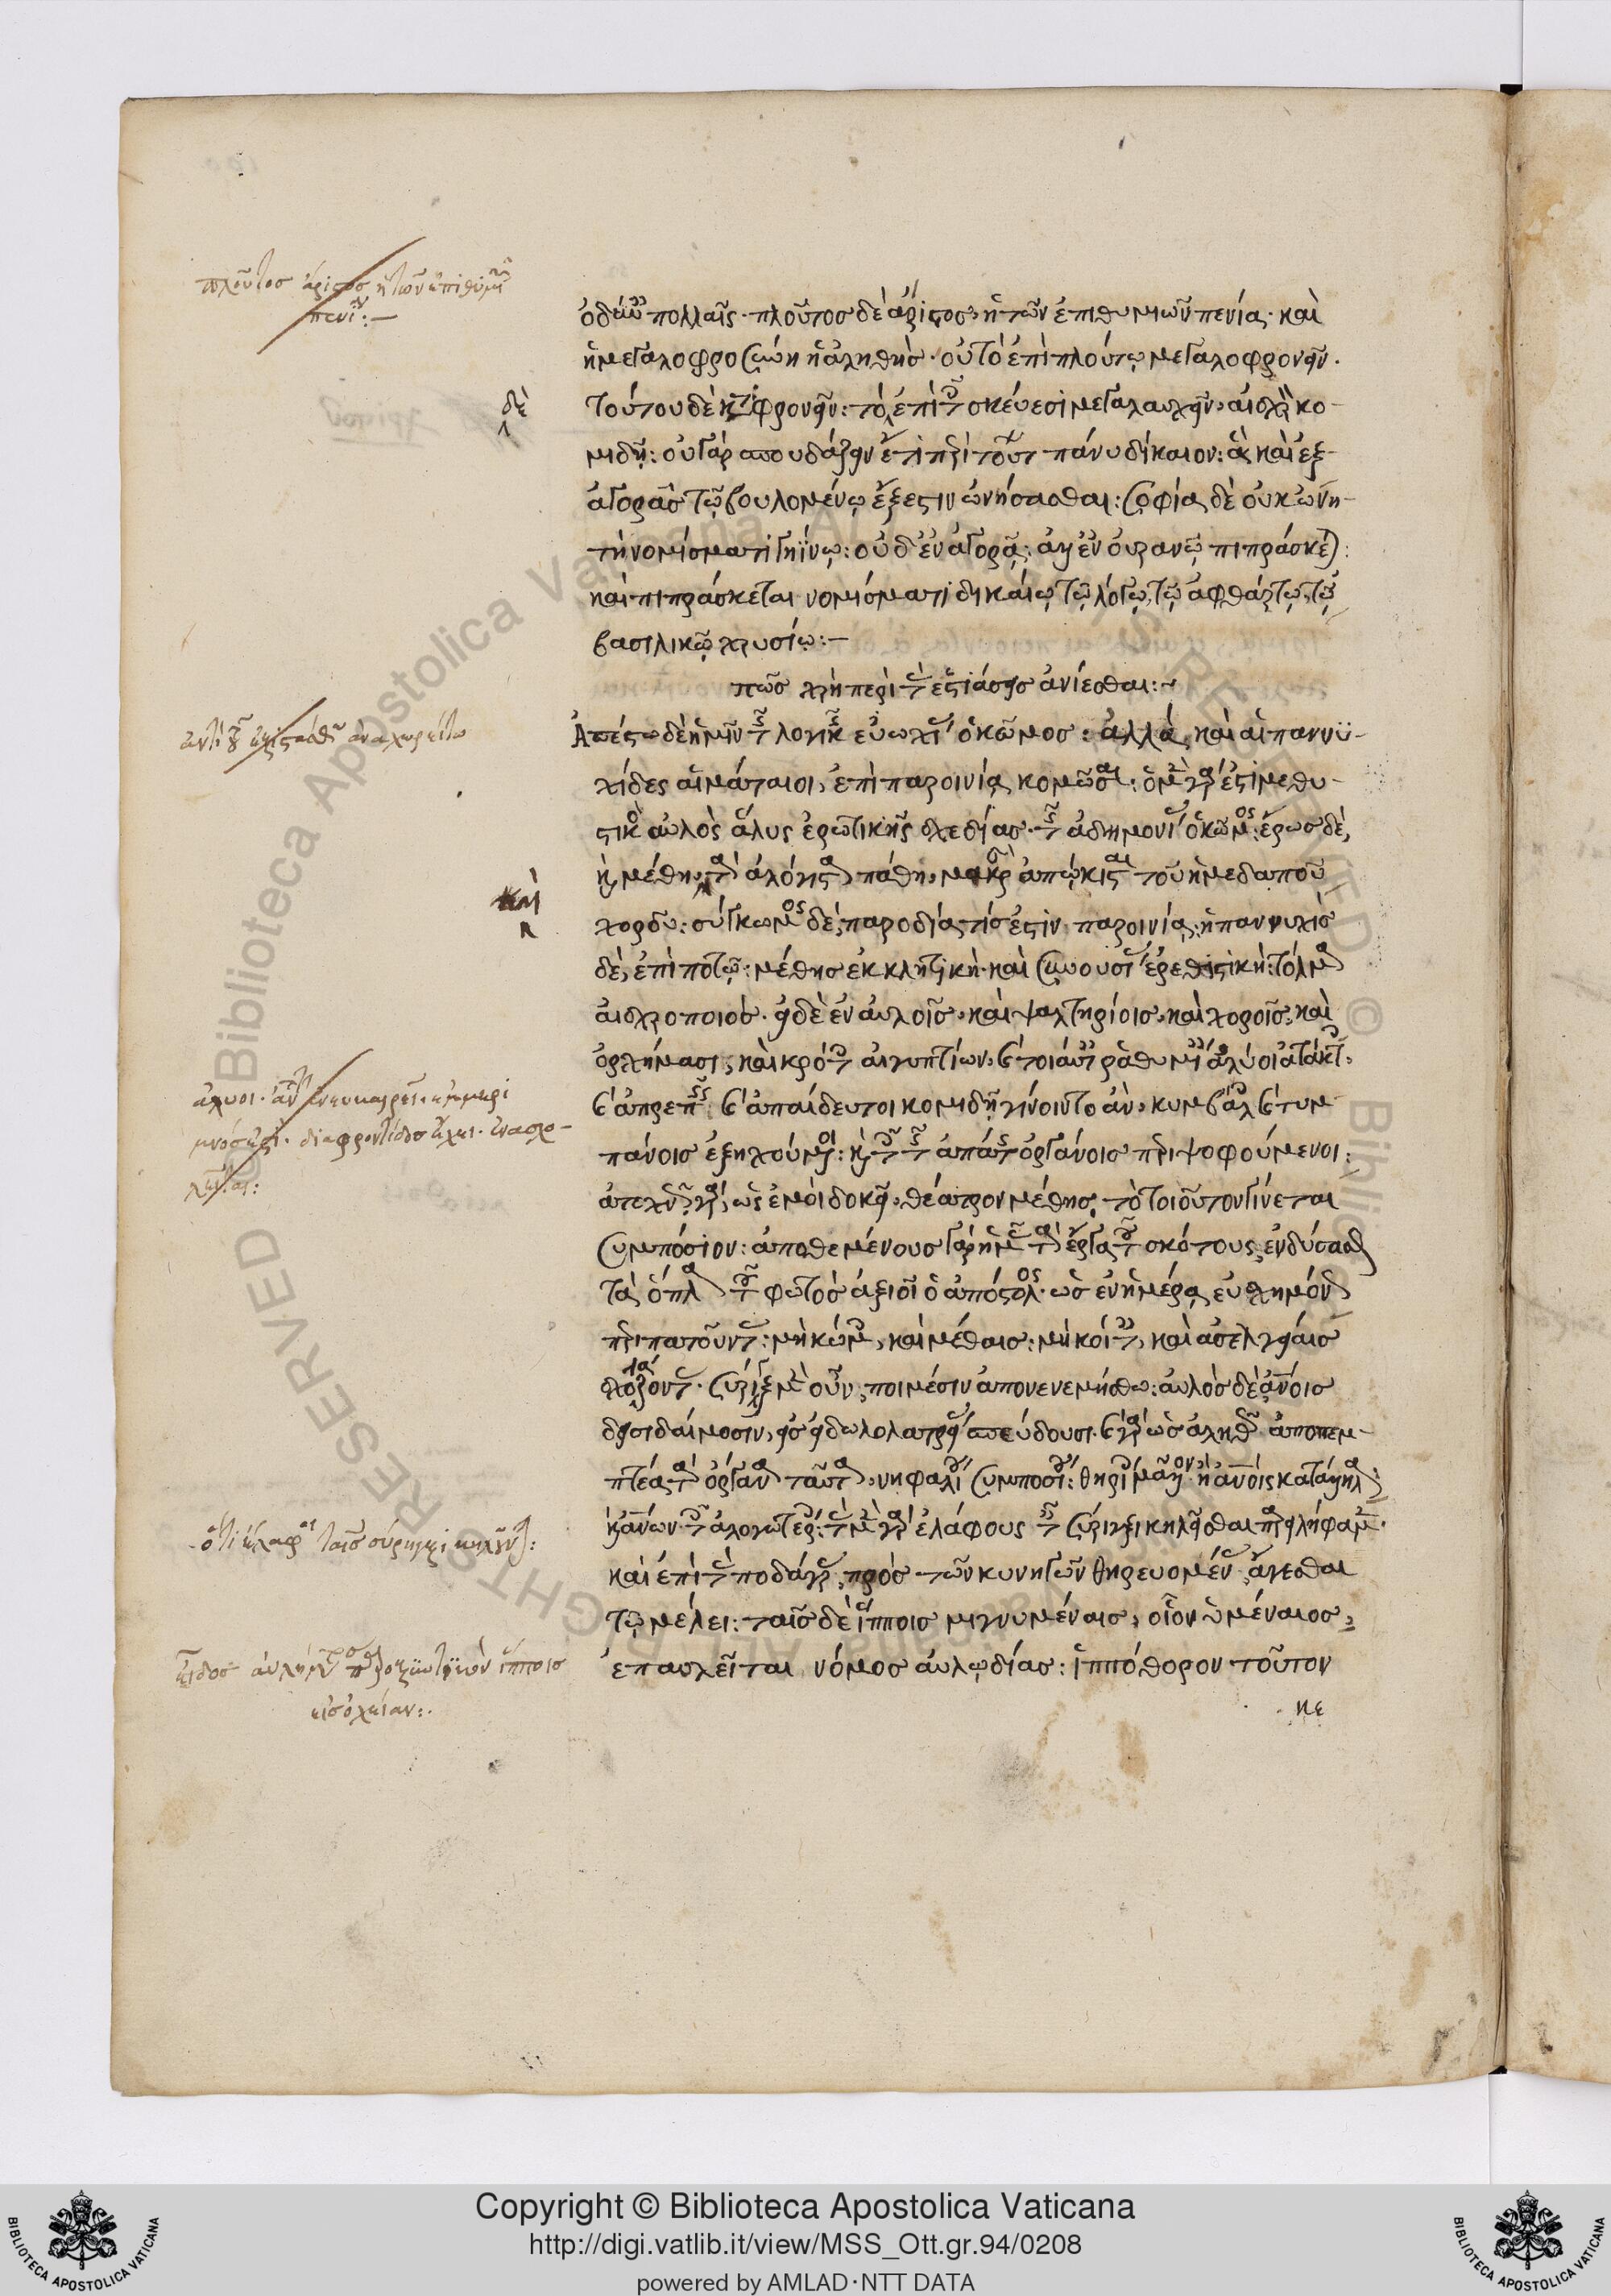 πλοῦτος ἄριστος ἡ τῶν ἐπιθυμιῶν
πενία:—
ὁδεύων πολλαῖς· πλοῦτος δὲ ἄριστος, ἡ τῶν ἐπιθυμιῶν πενία· καὶ
ἡ μεγαλοφροσύνη ἡ ἀληθὴς· οὐ τὸ ἐπὶ πλούτῳ μεγαλοφρονεῖν.
δὲ
τούτου δὲ καταφρονεῖν: τὸ ἐπὶ τοῖς σκεύεσι μεγαλαυχεῖν, αἰσχρὸν κο-
μιδῇ: οὐ γὰρ σπουδάζειν ἔτι περὶ τούτων πάνυ δίκαιον: ἃ καὶ ἐξ
ἀγορᾶς τῷ βουλομένῳ ἔξεστιν ὠνήσασθαι: σοφία δὲ οὐκ ὠνη-
τὴ νομίσματι γηΐνῳ: οὐδ' ἐν ἀγορᾷ: ἀλλ' ἐν οὐρανῷ πιπράσκεται:
καὶ πιπράσκεται νομίσματι δικαίῳ τῷ λόγῳ, τῷ ἀφθάρτῳ, τῷ
βασιλικῷ χρυσίῳ:—
πῶς χρὴ περὶ τὰς ἑστιάσεις ἀνίεσθαι:~
ἀντὶ τοῦ ἀναχωρείτω
Ἀπέστω δὲ ἡμῖν τῆς λογικῆς εὐωχίας ὁ κῶμος: ἀλλὰ, καὶ αἱ παννυ-
χίδες αἱ μάταιοι, ἐπὶ παροινίᾳ κομῶσαι: ὁ μὲν γάρ ἐστι μεθυ-
στικὸς αὐλὸς ἅλυς ἐρωτικῆς σχεδίας τῆς ἀδημονίας ὁ κῶμος: ἔρως δὲ,
καὶ
καὶ μέθη, τὰ ἀλόγιστα πάθη, μακρὰν ἀπῴκισται τοῦ ἡμεδαποῦ
χοροῦ: σύγκωμος δὲ, παροδία τίς ἐστὶν παροινίας, ἡ παννυχὶς
δὲ, ἐπὶ ποτῷ: μέθης ἐκκλητικὴ καὶ συνουσίας ἐρεθιστικὴ: τόλμα
αἰσχροποιός· εἰ δὲ ἐν αὐλοῖς, καὶ ψαλτηρίοις, καὶ χοροῖς, καὶ
ὀρχήμασι, καὶ κροτάλοις αἰγυπτίων, καὶ τοιαύταις ῥαθυμίαις ἄλυοι ἄτακτοι,
καὶ ἀπρεπεῖς καὶ ἀπαίδευτοι κομιδῇ γίνοιντο ἂν, κυμβάλοις καὶ τυμ-
πάνοις ἐξηχούμενοι: καὶ τοῖς τῆς ἀπάτης ὀργάνοις περιψοφούμενοι:
ἀτεχνῶς γὰρ, ὡς ἐμοὶ δοκεῖ, θέατρον μέθης τὸ τοιοῦτον γίνεται
συμπόσιον: ἀποθεμένους γὰρ ἡμᾶς τὰ ἔργα τοῦ σκότους, ἐνδύσασθαι
τὰ ὅπλα τοῦ φωτὸς ἀξιοῖ ὁ ἀπόστολος· ὡς ἐν ἡμέρᾳ εὐσχημόνως
περιπατοῦντας: μὴ κώμοις, καὶ μέθαις: μὴ κοίταις, καὶ ἀσελγείαις
σχολάζοντας· σύριγξ μὲν οὖν, ποιμέσιν ἀπονενεμήσθω: αὐλὸς δὲ ἀνοις
δεισιδαίμοσιν, εἰς εἰδωλολατρείαν σπεύδουσι. καὶ γὰρ ὡς ἀληθῶς ἀποπεμ-
πτέα τὰ ὄργανα ταῦτα, νηφαλίου συμποσίου: θηρίοις μᾶλλον ἢ ἀνοις κατάλληλα:
καὶ ἀνων τοῖς ἀλογωτέροις: τὰς μὲν γὰρ ἐλάφους ταῖς σύριγξι κηλεῖσθαι παρειλήφαμεν·
ὅτι ἔλαφοι ταῖς σύριγγξι κηλοῦνται:
καὶ ἐπὶ τὰς ποδάγρας, πρὸς τῶν κυνηγῶν θηρευομένας ἄγεσθαι
τῷ μέλει: ταῖς δὲ ἵπποις μιγνυμέναις, οἷον ὑμέναιος,
ἐπαυλεῖται νόμος αὐλῳδίας: ἱππόθορον τοῦτον
εἰς ὀχείαν:.
κε
Copyright © Biblioteca Apostolica Vaticana
http://digi.vatlib.it/view/MSS_Ott.gr.94/0208
powered by AMLAD·NTT DATA
BIBLIOTECA APOSTOLICA VATICANA
BIBLIOTECA APOSTOLICA VATICANA